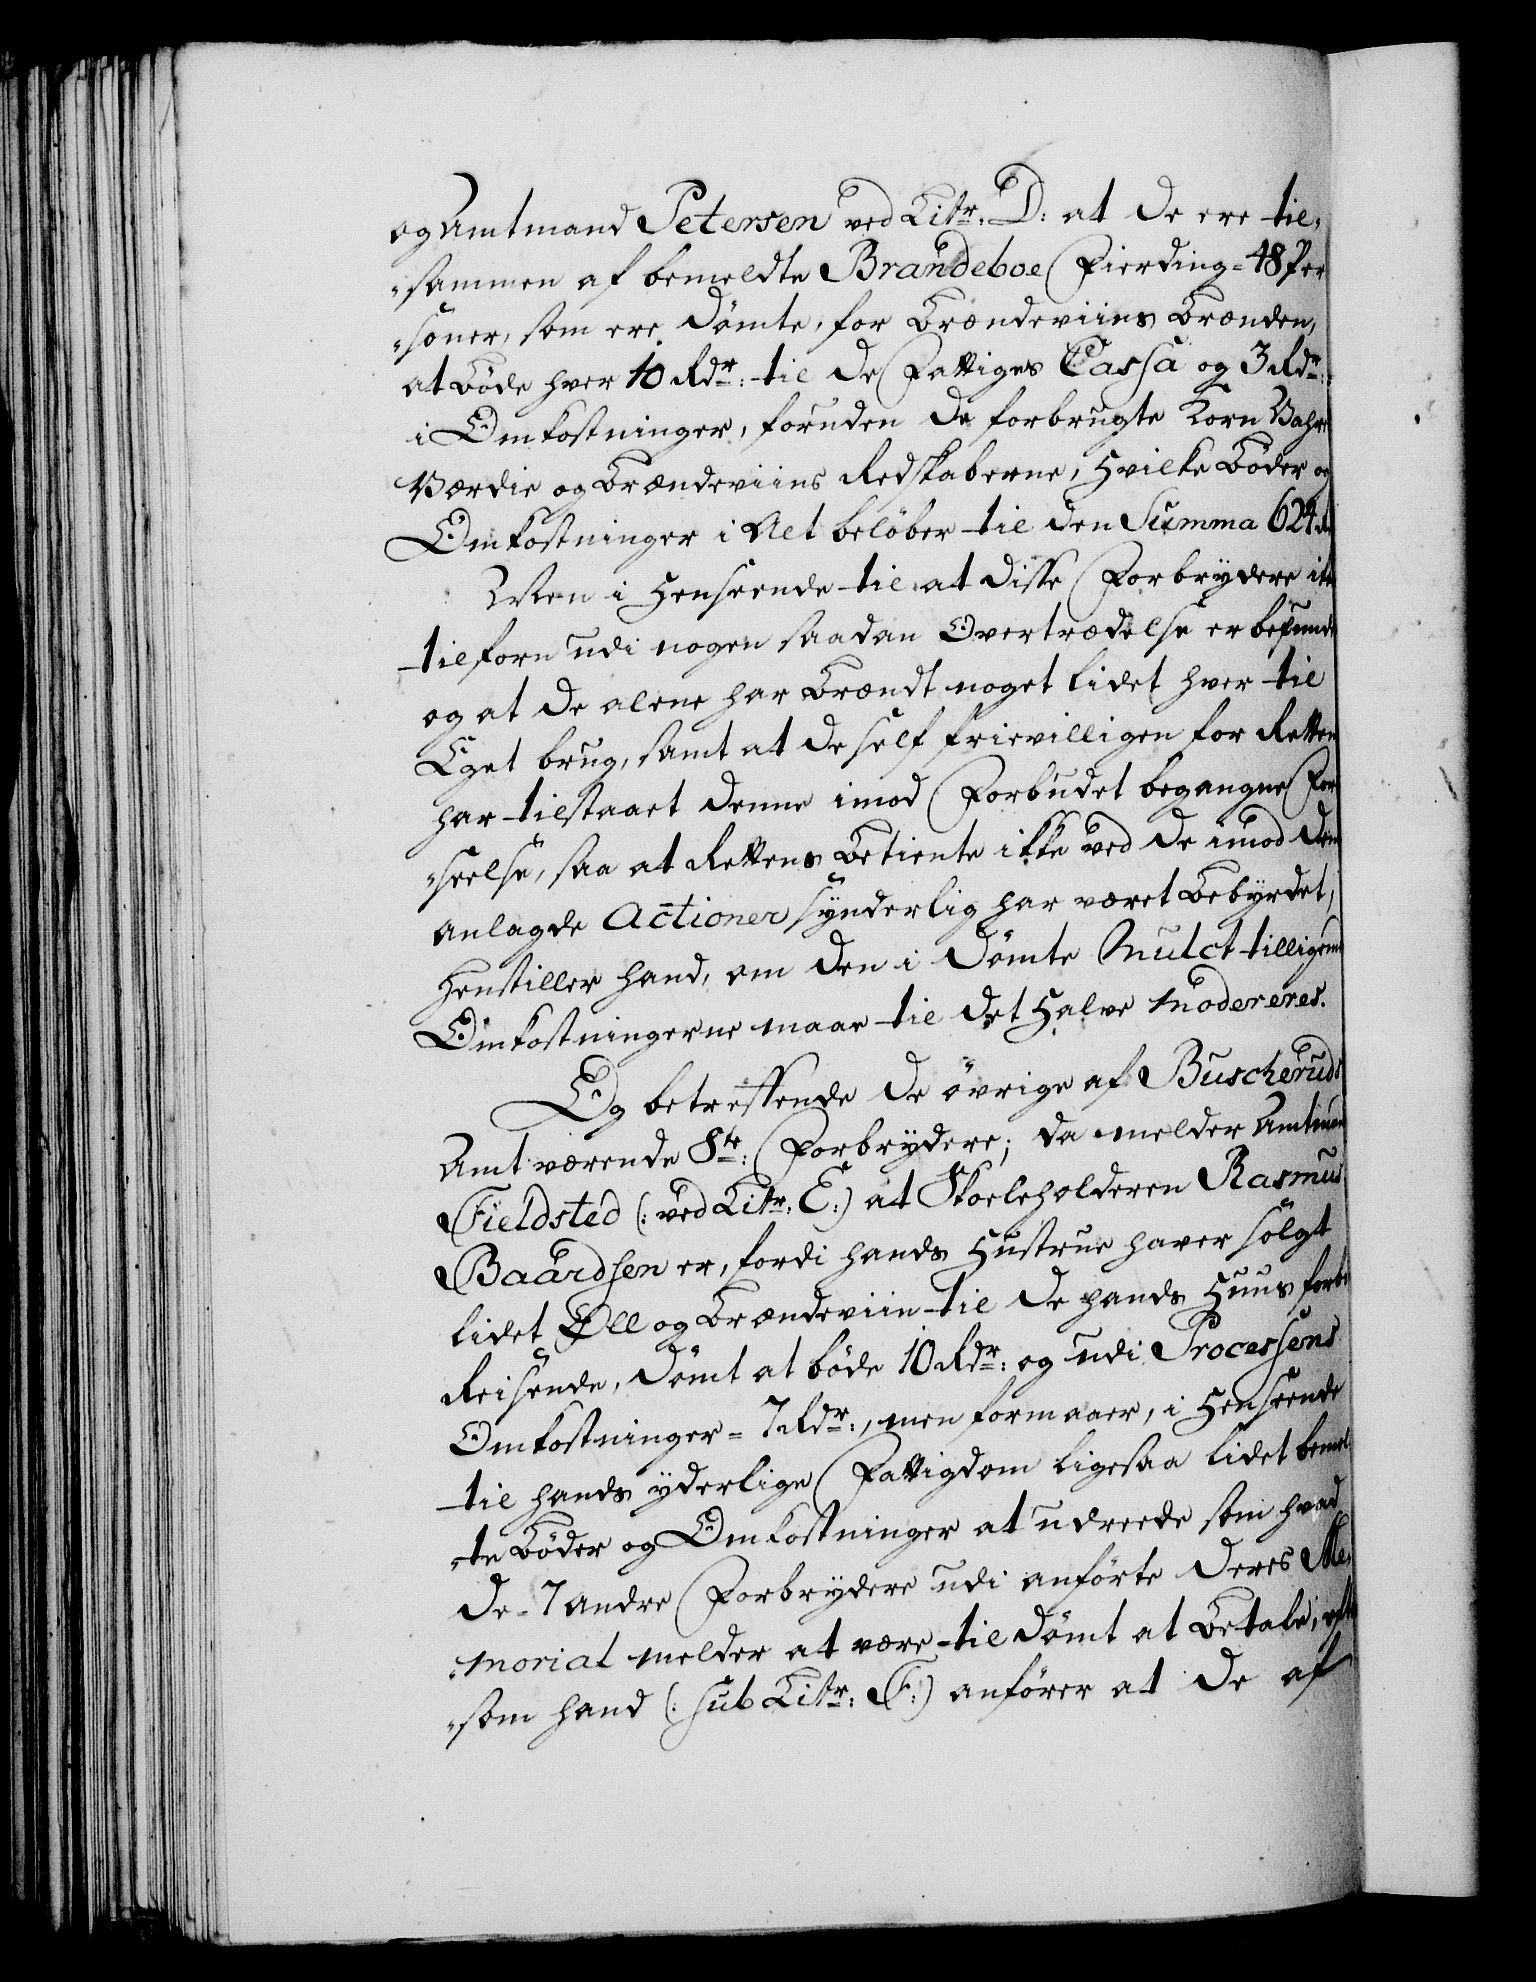 og Amtmand Petersen ved Litr. D: at de ere til,
"sammen af bemeldte Brandeboe Fierding = 48 Per
"soner, som ere dömte, for Brændeviins Brænden,
at böde hver 10 Rdr: til de Fattiges Cassa og 3 Rdr:
i Omkostninger, foruden de forbrugte Korn Vahre
Værdie og Brændeviins Redskaberne, hvilke Böder og
Omkostninger i Alt belöber til den Summa 624 Rd
Men i Henseende til at disse Forbrydere ik
tilforn udi nogen saadan Overtrædelse er befunde
og at de alene har Brændt noget lidet hver til
Eget brug, samt at de self frievilligen for Retten
har tilstaaet denne imod Forbudet begangne For
"seelse, saa at Rettens Betiente ikke ved de imod dem
anlagde Actioner synderlig har været Bebyrdet,
Henstiller hand, om den i dömte Mulct tilligem
Omkostningerne maae til det Halve modereres.
Og betreffende de övrige af Buscheruds
Amt værende 8te: Forbrydere; da melder Amtman
Fieldsted (: ved Litr: E:) at Skoeleholderen Rasmus
Baardsen er, fordi hands Hustrue haver solgt
lidet Öll og Brændeviin til de hands Huus forbi
Reisende, dömt at böde 10 Rdr: og udi Processens
Omkostninger = 7 Rdr:, men formaaer, i Henseende
til hands yderlige Fattigdom ligesaa lidet bemel
"te Böder og Omkostninger at udreede som hvad
de = 7 andre Forbrydere udi anförte deres Me,
"morial melder at være til dömt at Betale, eft
"som hand (: sub Litr: F:) anförer at de af